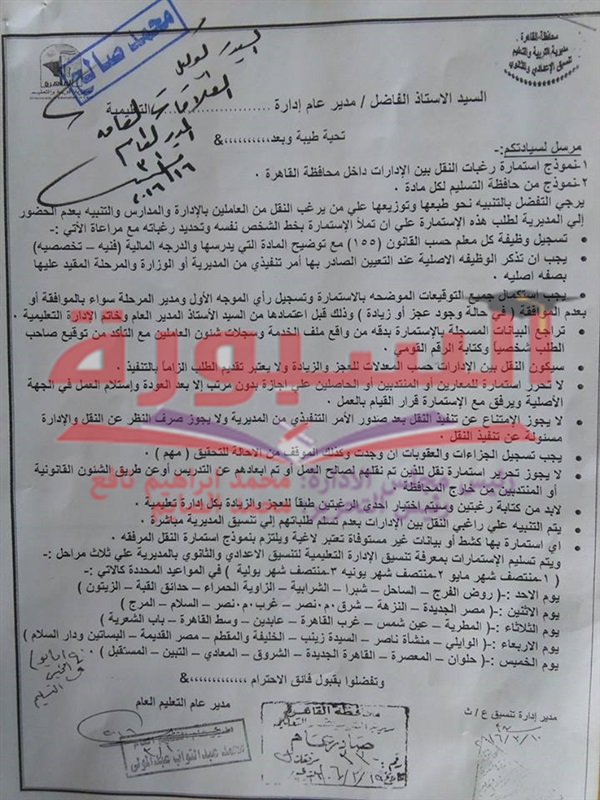 محافظة القاهرة
مديرية التربية والتعليم
تنسيق الإعدادي والثانوي
محمد صالح
السيد الاستاذ الفاضل / مدير عام إدارة ........................ التعليمية
تحية طيبة وبعد،،،،،،،،،،&
مرسل لسيادتكم:-
١-نموذج استمارة رغبات النقل بين الإدارات داخل محافظة القاهرة ٠
٢-نموذج من حافظة التسليم لكل مادة ٠
يرجي التفضل بالتنبيه نحو طبعها وتوزيعها علي من يرغب النقل من العاملين بالإدارة والمدارس والتنبيه بعدم الحضور
إلي المديرية لطلب هذه الإستمارة علي ان تملأ الإستمارة بخط الشخص نفسه وتحديد رغباته مع مراعاة الآتي :-
• تسجيل وظيفة كل معلم حسب القانون (١٥٥) مع توضيح المادة التي يدرسها والدرجه المالية (فنيه – تخصصيه)
• يجب ان تذكر الوظيفه الاصلية عند التعيين الصادر بها أمر تنفيذي من المديرية أو الوزارة والمرحلة المقيد عليها
بصفه اصليه ٠
• يجب استكمال جميع التوقيعات الموضحه بالاستمارة وتسجيل رأي الموجه الأول ومدير المرحلة سواء بالموافقة أو
بعدم الموافقة ( في حالة وجود عجز أو زيادة ) وذلك قبل اعتمادها من السيد الأستاذ المدير العام وخاتم الإدارة التعليمية ٠
• تراجع البيانات المسجلة بالإستمارة بدقه من واقع ملف الخدمة وسجلات شئون العاملين مع التأكد من توقيع صاحب
الطلب شخصياً وكتابة الرقم القومي ٠
• سيكون النقل بين الإدارات حسب المعدلات للعجز والزيادة ولا يعتبر تقديم الطلب الزاماً بالتنفيذ ٠
• لا تحرر استمارة للمعارين أو المنتدبين أو الحاصلين علي اجازة بدون مرتب إلا بعد العودة وإستلام العمل في الجهة
الأصلية ويرفق مع الإستمارة قرار القيام بالعمل ٠
• لا يجوز الإمتناع عن تنفيذ النقل بعد صدور الأمر التنفيذي من المديرية ولا يجوز صرف النظر عن النقل والإدارة
مسئولة عن تنفيذ النقل ٠
• يجب تسجيل الجزاءات والعقوبات ان وجدت وكذلك الموقف من الاحالة للتحقيق ( مهم ) ٠
• لا يجوز تحرير استمارة نقل للذين تم نقلهم لصالح العمل أو تم ابعادهم عن التدريس أوعن طريق الشئون القانونية
أو المنتدبين من خارج المحافظة ٠
• لابد من كتابة رغبتين وسيتم اختيار احدي الرغبتين طبقاً للعجز والزيادة بكل إدارة تعليمية ٠
• يتم التنبيه علي راغبي النقل بين الإدارات بعدم تسلم طلباتهم إلي تنسيق المديرية مباشرة ٠
• اي استمارة بها كشط أو بيانات غير مستوفاة تعتبر لاغية ويلتزم بنموذج استمارة النقل المرفقه ٠
• ويتم تسليم الإستمارات بمعرفة تنسيق الإدارة التعليمية لتنسيق الاعدادي والثانوي بالمديرية علي ثلاث مراحل :-
( ١-منتصف شهر مايو ٢-منتصف شهر يونيه ٣-منتصف شهر يولية ) في المواعيد المحددة كالاتي :-
يوم الاحد :-( روض الفرج – الساحل – شبرا – الشرابية – الزاوية الحمراء – حدائق القبة – الزيتون )
يوم الأثنين :-( مصر الجديدة – النزهة – شرق م٠نصر – غرب م٠نصر – السلام – المرج )
يوم الثلاثاء :-( المطرية – عين شمس – غرب القاهرة – عابدين – وسط القاهرة – باب الشعرية )
يوم الاربعاء :-( الوايلي – منشأة ناصر – السيدة زينب – الخليفة والمقطم – مصر القديمة – البساتين ودار السلام )
يوم الخميس :-( حلوان – المعصرة – القاهرة الجديدة – الشروق – المعادي – التبين – المستقبل ) ٠
وتفضلوا بقبول فائق الاحترام ،،،،،،،،،،&
مدير إدارة تنسيق ع / ث
مدير عام التعليم العام
السبورة
رئيس مجلس الادارة: محمد ابراهيم نافع
رئيس التحرير: محمد الصايم